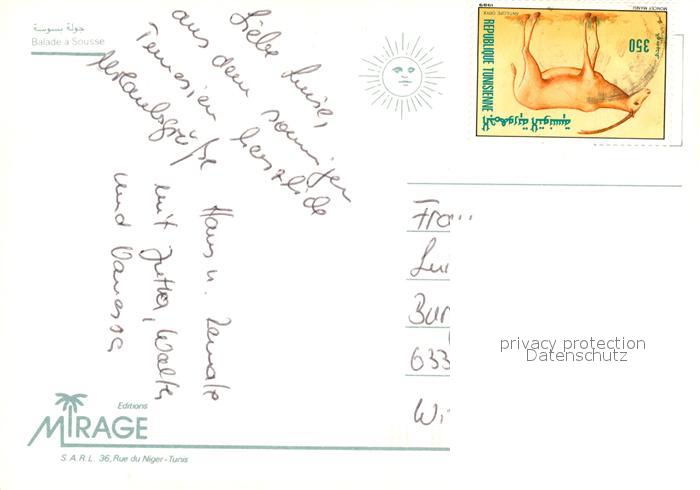 جولة بسوسة
Balade à Sousse
Liebe Luise,
aus dem sonnigen
Tunesien herzliche
Urlaubsgrüße
Hans u. Renate
mit Jutta, Walter
und Vanessa
1989
ANTILOPE ORIX
MONCEF MANSI
REPUBLIQUE TUNISIENNE
350
الجمهورية التونسية
Frau
Lui
Bur
633
privacy protection
Datenschutz
Editions
MIRAGE
S.A.R.L. 36, Rue du Niger-Tunis